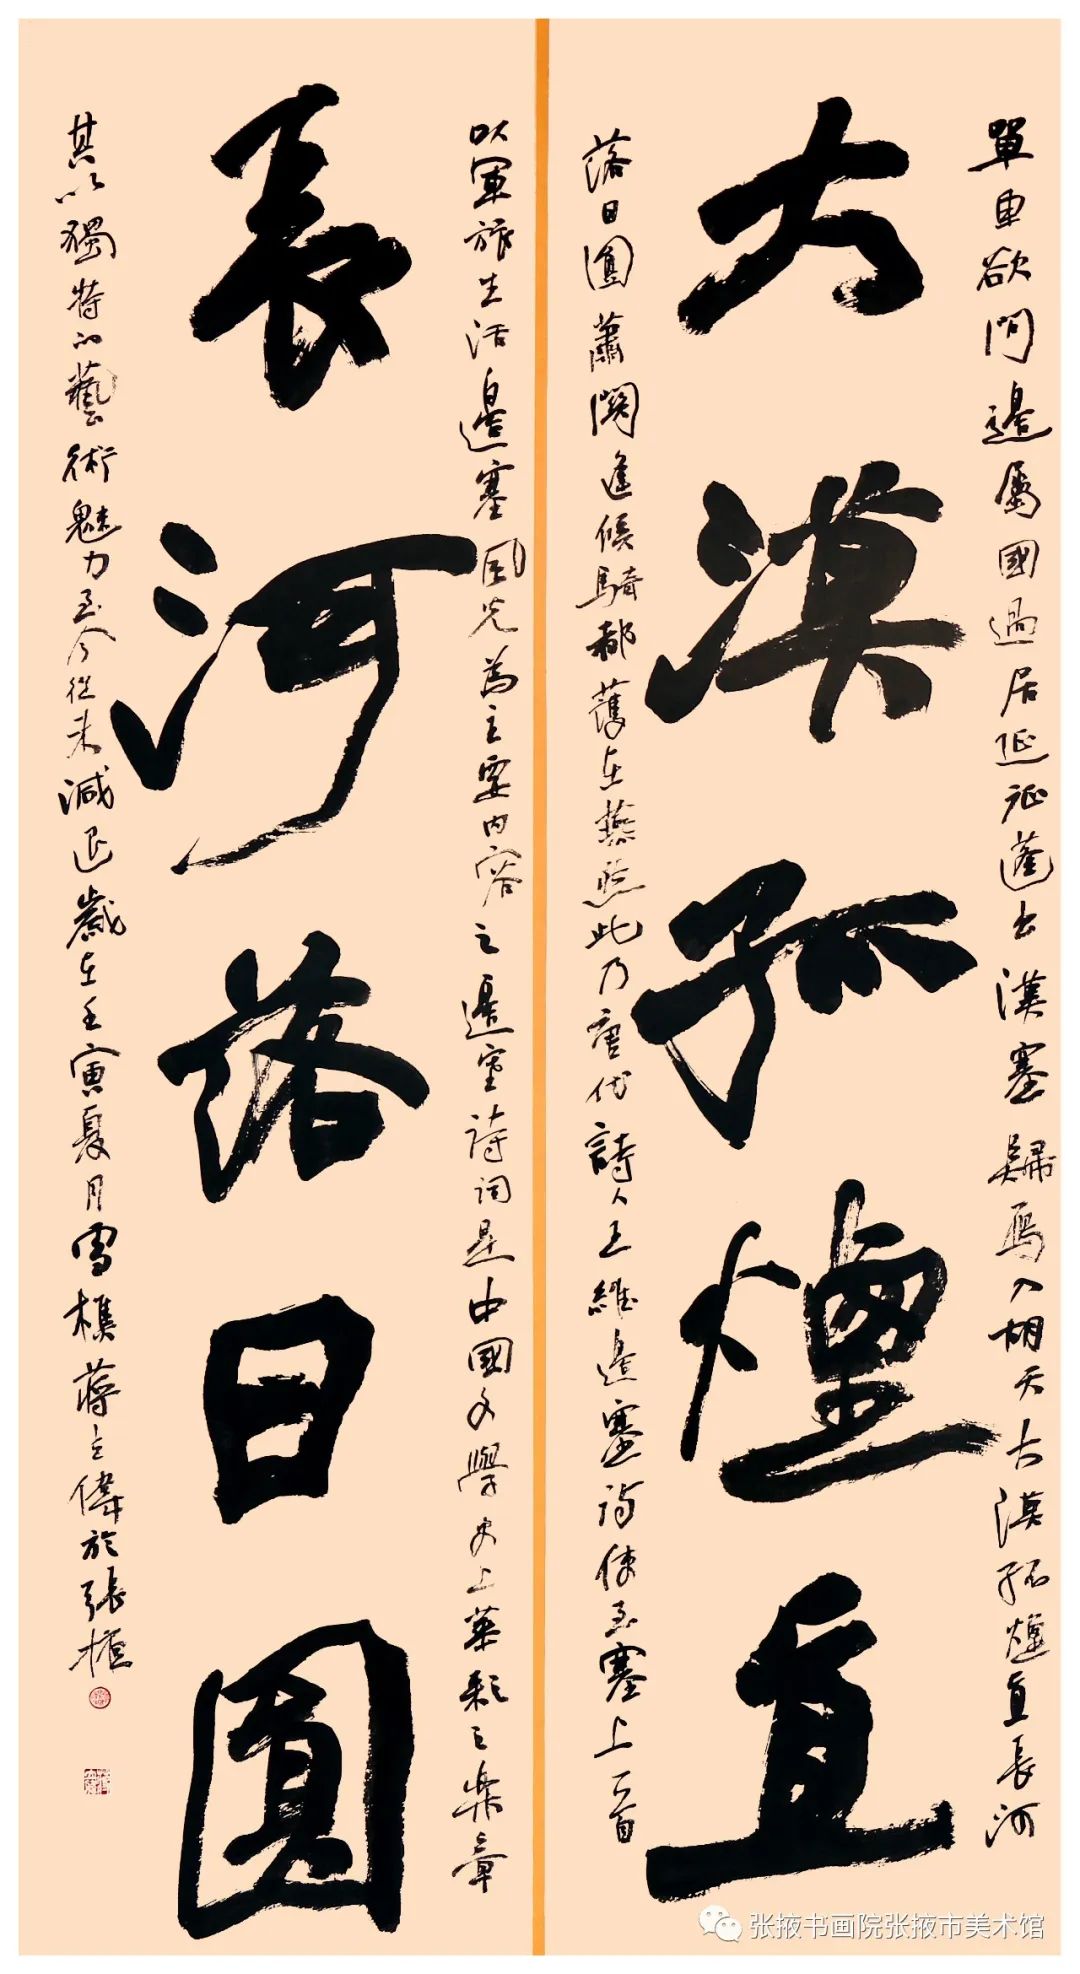 大漠孤煙直
單車欲問邊屬國過居延征蓬出漢塞歸雁入胡天大漠孤煙直長河
落日圓蕭關逢候騎都護在燕然此乃唐代詩人王維邊塞詩使至塞上一首
長河落日圓
以軍旅生活邊塞風光為主要內容之邊塞詩詞是中國文學史上華彩之樂章
其以獨特的藝術魅力至今從未減退歲在壬寅夏月雪樵蔣立偉於張掖
张掖书画院张掖市美术馆